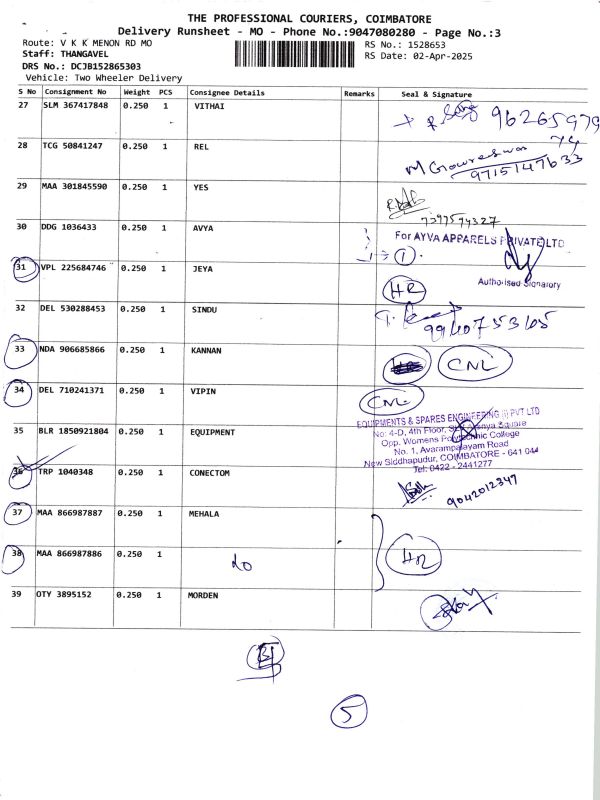 THE PROFESSIONAL COURIERS, COIMBATORE
Delivery Runsheet - MO - Phone No.:9047080280 - Page No.:3
Route: V K K MENON RD MO
RS No.: 1528653
Staff: THANGAVEL
RS Date: 02-Apr-2025
DRS No.: DCJB152865303
Vehicle: Two Wheeler Delivery
S No Consignment No Weight PCS Consignee Details Remarks Seal & Signature
27 SLM 367417848 0.250 1 VITHAI
28 TCG 50841247 0.250 1 REL
M Gowreswari
9715147633
29 MAA 301845590 0.250 1 YES
7397594327
30 DDG 1036433 0.250 1 AVYA
For AYVA APPARELS PRIVATE LTD
1
Authorised Signatory
31 VPL 225684746 0.250 1 JEYA
HR
32 DEL 530288453 0.250 1 SINDU
9940753105
33 NDA 906685866 0.250 1 KANNAN
CNL
34 DEL 710241371 0.250 1 VIPIN
CNL
35 BLR 1850921804 0.250 1 EQUIPMENT
EQUIPMENTS & SPARES ENGINEERING (I) PVT LTD
No: 4-D, 4th Floor, Square
Opp. Womens Polytechnic College
No. 1, Avarampalayam Road
New Siddhapudur, COIMBATORE - 641 044
Tel: 0422 - 2441277
36 TRP 1040348 0.250 1 CONECTOM
9042012347
37 MAA 866987887 0.250 1 MEHALA
38 MAA 866987886 0.250 1 do
HR
39 OTY 3895152 0.250 1 MORDEN
5